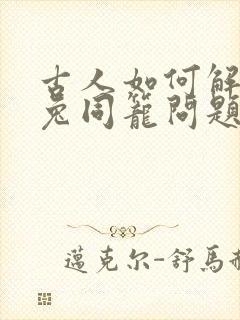 古人如何解
兔同籠問題
邁克尔-舒馬赫